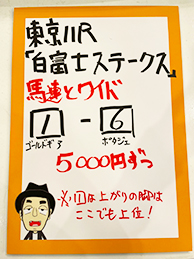 東京11R
「白富士ステークス」
馬連とワイド
1 - 6
ゴールドギア ポタジェ
5000円ずつ
※1な上がりの脚は
ここでも上位!